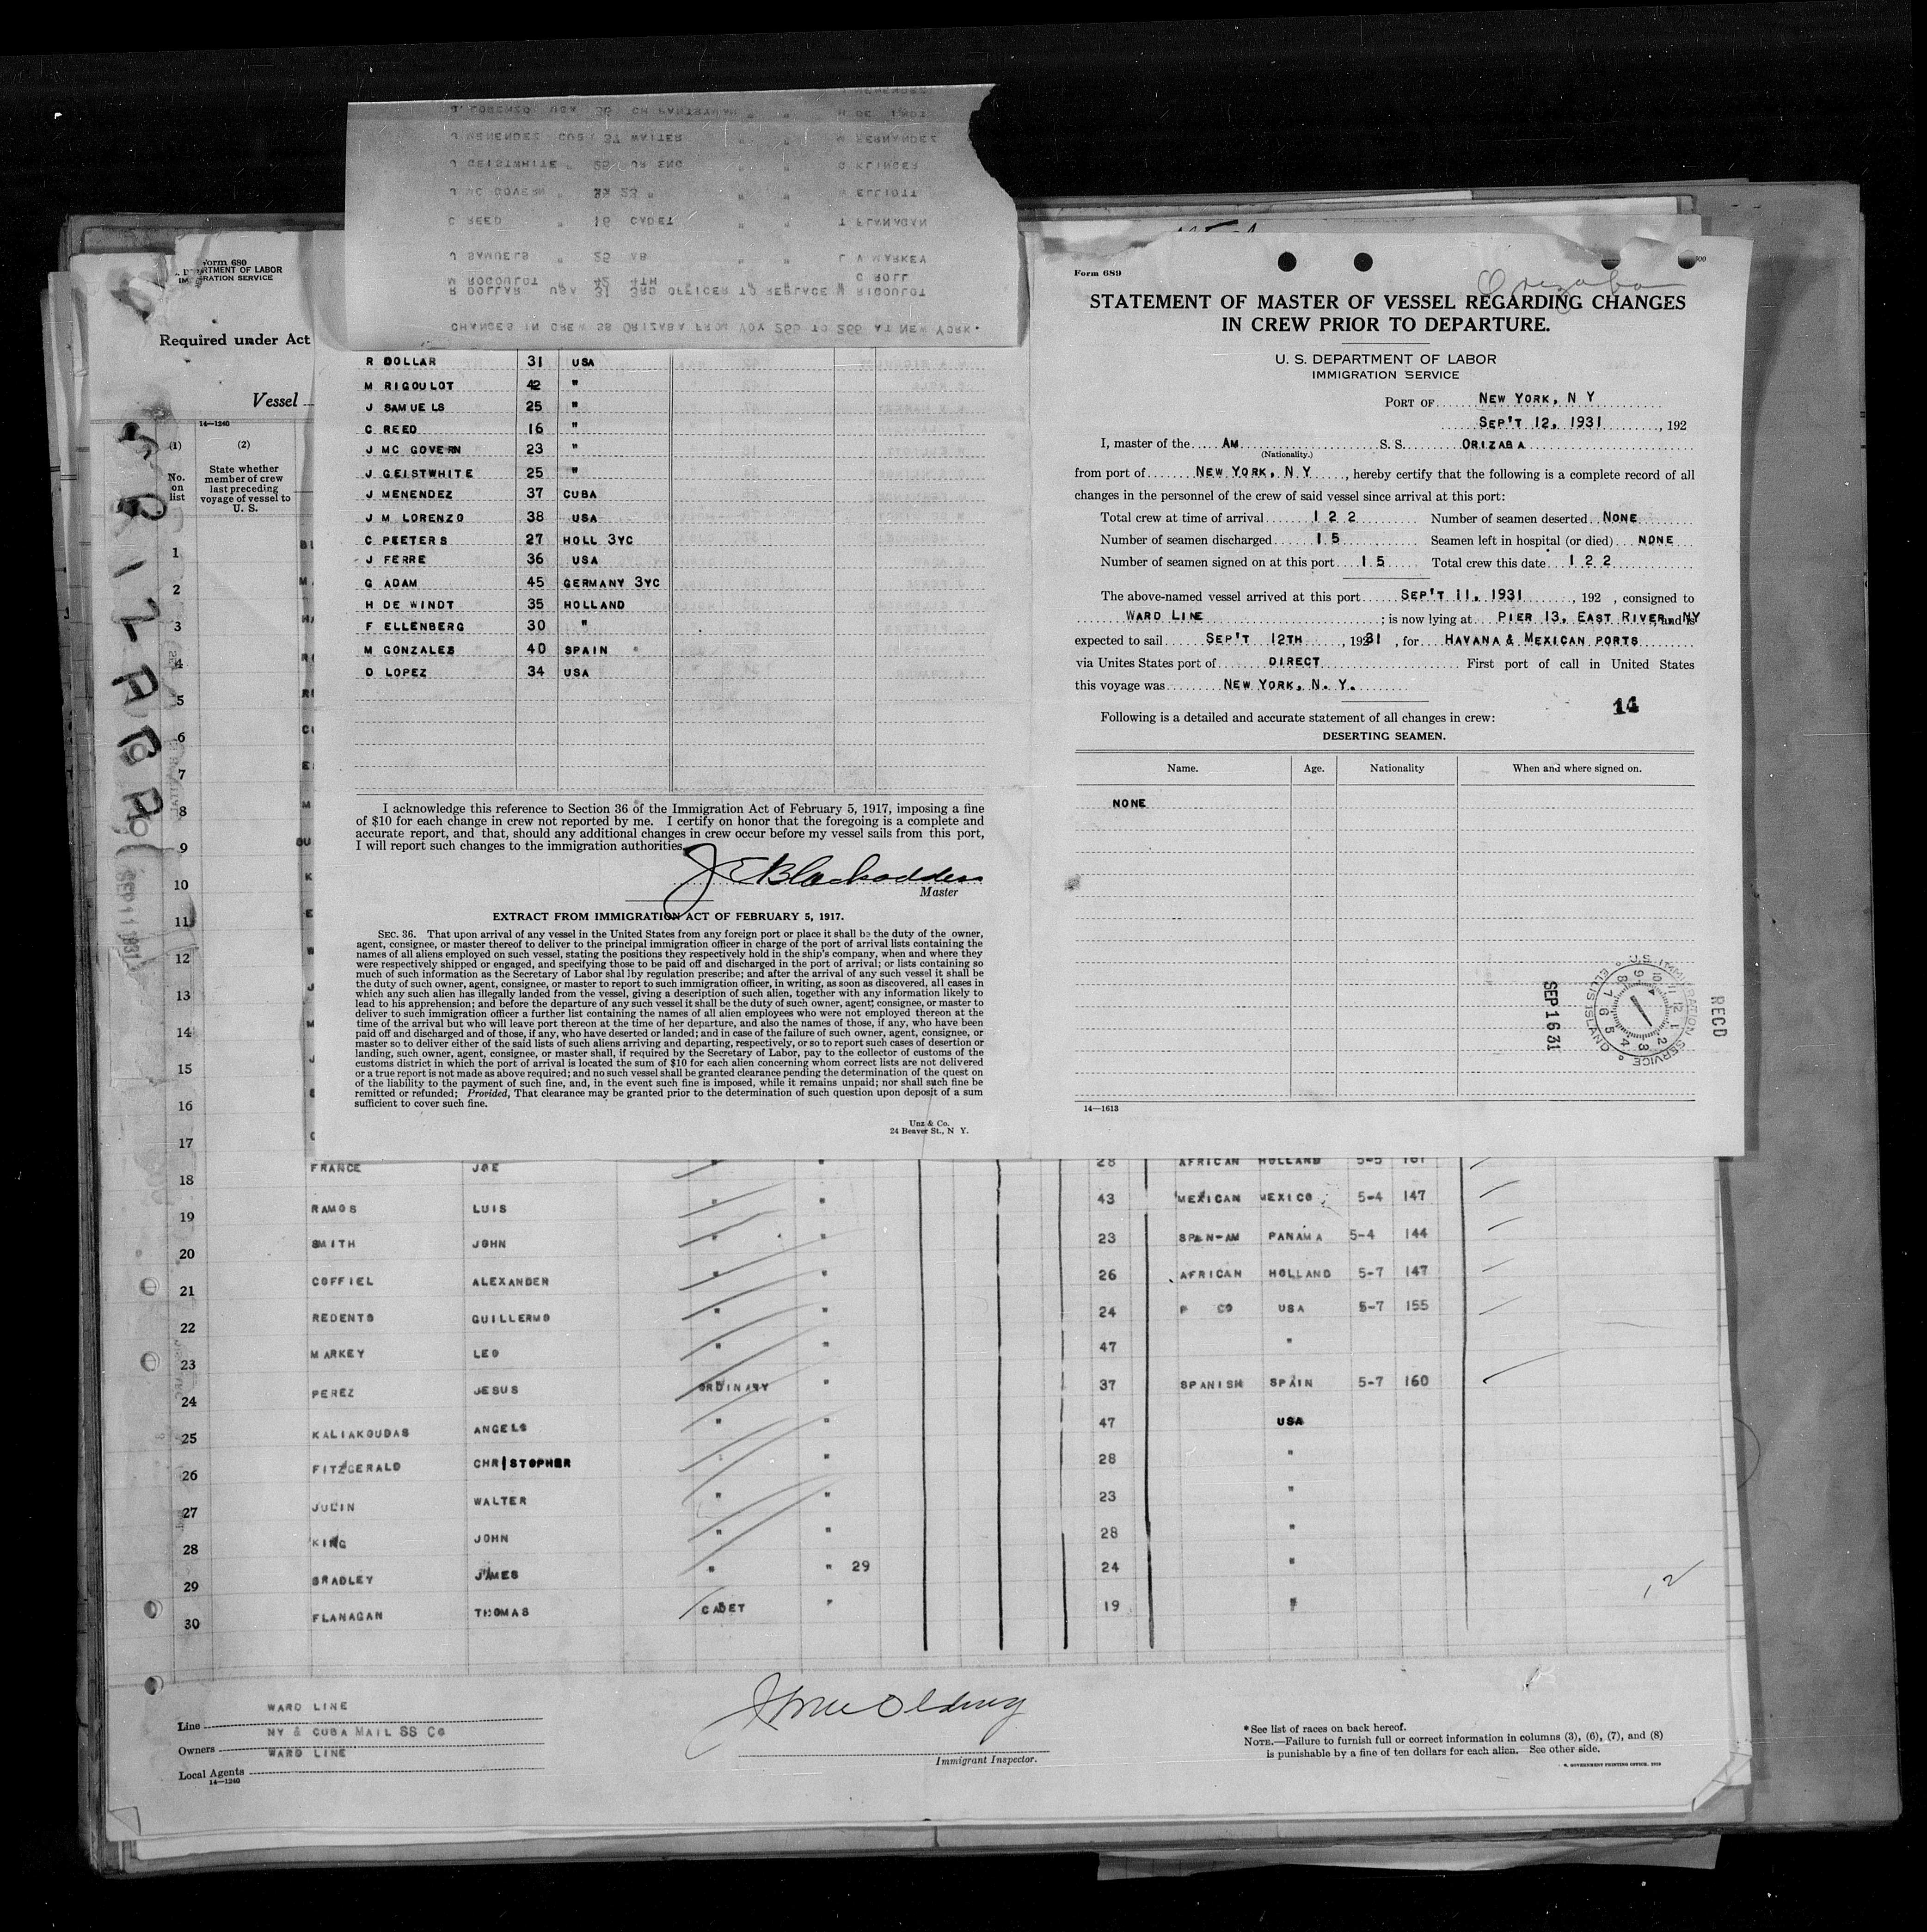 CHANGES IN CREW SS ORIZABA FROM VOY 265 TO 266 AT NEW YORK.
R DOLLAR USA 31 3RD OFFICER TO REPLACE M RIGOULOT
M ROGOULOT " 42 4TH " " C ROLL
J SAMUELS 25 AB L V MARKEY
C REED " 16 CADET " " T FLANAGAN
J MC GOVERN " 23 " " " W ELLIOTT
J GEISTWHITE " 25 JR ENG " " C KLINGER
J MENENDEZ CUB 37 WAITER " " M FERNANDEZ
J. LORENZO USA 38 CH PANTRYMAN " " H DE WINDT
MENENDEZ
Form 680
DEPARTMENT OF LABOR
IMMIGRATION SERVICE
Required under Act
Vessel
14—1240
(1)
(2)
No. on list
State whether member of crew last preceding voyage of vessel to U. S.
ORIZABA
SEP 11 1931
1
2
3
4
5
6
7
8
9
10
11
12
13
14
15
16
17
R DOLLAR 31 USA
M RIGOULOT 42 "
J SAMUELS 25 "
C REED 16 "
J MC GOVERN 23 "
J GEISTWHITE 25 "
J MENENDEZ 37 CUBA
J M LORENZO 38 USA
C PEETERS 27 HOLL 3YC
J FERRE 36 USA
G ADAM 45 GERMANY 3YC
H DE WINDT 35 HOLLAND
F ELLENBERG 30 "
M GONZALES 40 SPAIN "
D LOPEZ 34 USA
I acknowledge this reference to Section 36 of the Immigration Act of February 5, 1917, imposing a fine
of $10 for each change in crew not reported by me. I certify on honor that the foregoing is a complete and
accurate report, and that, should any additional changes in crew occur before my vessel sails from this port,
I will report such changes to the immigration authorities.
J E Blackadder
Master
EXTRACT FROM IMMIGRATION ACT OF FEBRUARY 5, 1917.
SEC. 36. That upon arrival of any vessel in the United States from any foreign port or place it shall be the duty of the owner,
agent, consignee, or master thereof to deliver to the principal immigration officer in charge of the port of arrival lists containing the
names of all aliens employed on such vessel, stating the positions they respectively hold in the ship's company, when and where they
were respectively shipped or engaged, and specifying those to be paid off and discharged in the port of arrival; or lists containing so
much of such information as the Secretary of Labor shal lby regulation prescribe; and after the arrival of any such vessel it shall be
the duty of such owner, agent, consignee, or master to report to such immigration officer, in writing, as soon as discovered, all cases in
which any such alien has illegally landed from the vessel, giving a description of such alien, together with any information likely to
lead to his apprehension; and before the departure of any such vessel it shall be the duty of such owner, agent, consignee, or master to
deliver to such immigration officer a further list containing the names of all alien employees who were not employed thereon at the
time of the arrival but who will leave port thereon at the time of her departure, and also the names of those, if any, who have been
paid off and discharged and of those, if any, who have deserted or landed; and in case of the failure of such owner, agent, consignee, or
master so to deliver either of the said lists of such aliens arriving and departing, respectively, or so to report such cases of desertion or
landing, such owner, agent, consignee, or master shall, if required by the Secretary of Labor, pay to the collector of customs of the
customs district in which the port of arrival is located the sum of $10 for each alien concerning whom correct lists are not delivered
or a true report is not made as above required; and no such vessel shall be granted clearance pending the determination of the quest on
of the liability to the payment of such fine, and, in the event such fine is imposed, while it remains unpaid; nor shall such fine be
remitted or refunded; Provided, That clearance may be granted prior to the determination of such question upon deposit of a sum
sufficient to cover such fine.
Unz & Co.
24 Beaver St., N Y.
Form 689
Orizaba
STATEMENT OF MASTER OF VESSEL REGARDING CHANGES
IN CREW PRIOR TO DEPARTURE.
U. S. DEPARTMENT OF LABOR
IMMIGRATION SERVICE
PORT OF NEW YORK, N Y
SEP'T 12, 1931, 192
I, master of the AM S. S. ORIZABA
(Nationality.)
from port of NEW YORK, N Y, hereby certify that the following is a complete record of all
changes in the personnel of the crew of said vessel since arrival at this port:
Total crew at time of arrival 122 Number of seamen deserted NONE
Number of seamen discharged 15 Seamen left in hospital (or died) NONE
Number of seamen signed on at this port 15 Total crew this date 122
The above-named vessel arrived at this port SEP'T 11, 1931, 192 , consigned to
WARD LINE; is now lying at PIER 13, EAST RIVER, NY and is
expected to sail SEP'T 12TH, 1931, for HAVANA & MEXICAN PORTS
via Unites States port of DIRECT First port of call in United States
this voyage was NEW YORK, N. Y.
14
Following is a detailed and accurate statement of all changes in crew:
DESERTING SEAMEN.
Name. Age. Nationality When and where signed on.
NONE
U.S. IMMIGRATION SERVICE ELLIS ISLAND
RECD
SEP 16 31
14—1613
18 FRANCE JOE 28 AFRICAN HOLLAND 5-5 161
19 RAMOS LUIS " " 43 MEXICAN MEXICO 5-4 147
20 SMITH JOHN " " 23 SPAN-AM PANAMA 5-4 144
21 COFFIEL ALEXANDER " " 26 AFRICAN HOLLAND 5-7 147
22 REDENTO GUILLERMO " " 24 P CO USA 5-7 155
23 MARKEY LEO " " 47 "
24 PEREZ JESUS ORDINARY " 37 SPANISH SPAIN 5-7 160
25 KALIAKOUDAS ANGELO " " 47 USA
26 FITZGERALD CHRISTOPHER " " 28 "
27 JULIN WALTER " " 23 "
28 KING JOHN " " 28 "
29 BRADLEY JAMES " " 29 24 "
30 FLANAGAN THOMAS CADET " 19 "
12
Line WARD LINE
Owners NY & CUBA MAIL SS CO
Local Agents WARD LINE
14—1240
Immigrant Inspector.
*See list of races on back hereof.
NOTE.—Failure to furnish full or correct information in columns (3), (6), (7), and (8)
is punishable by a fine of ten dollars for each alien. See other side.
GOVERNMENT PRINTING OFFICE